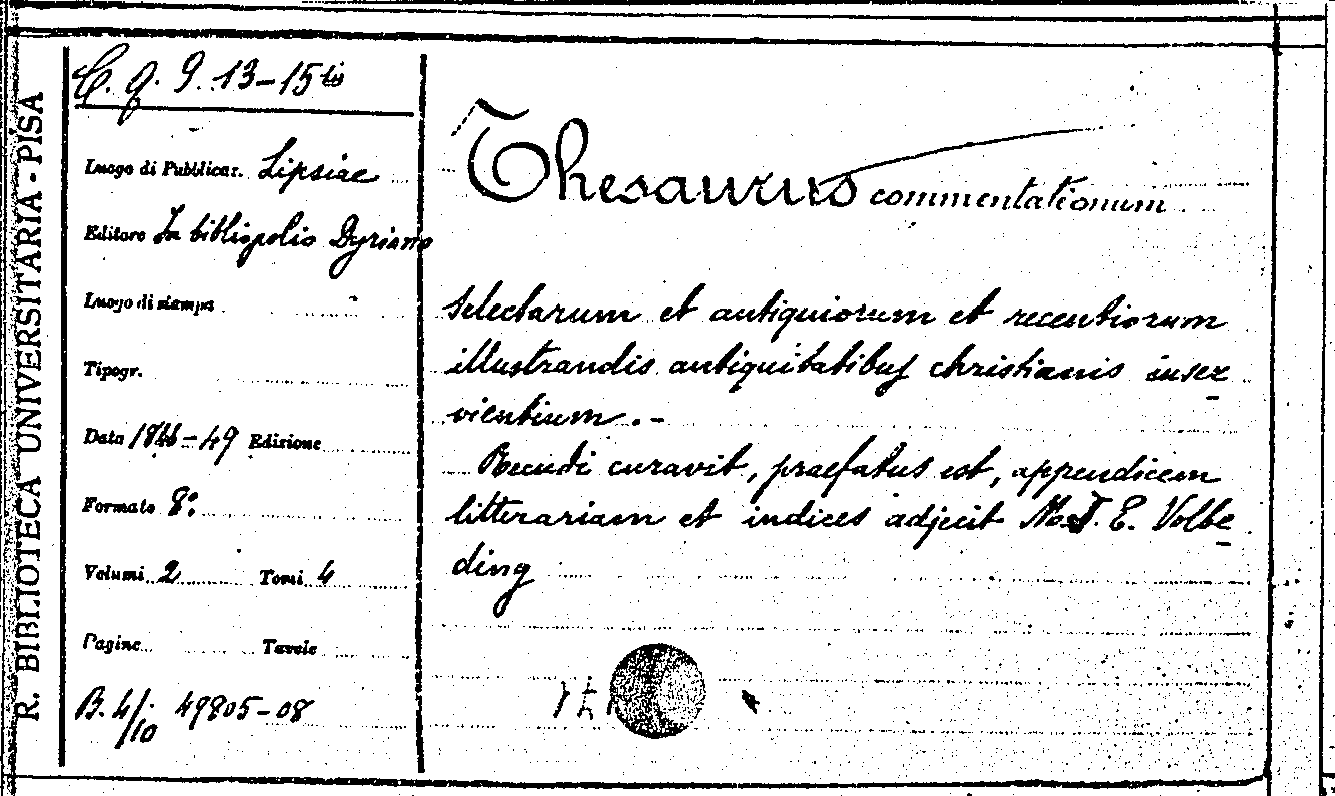 R. BIBLIOTECA UNIVERSITARIA - PISA
C. q. 9. 13-15 bis
Luogo di Pubblicaz. Lipsiae
Editore In bibliopolio Dyriano
Luogo di stampa
Tipogr.
Data -49 Edizione
Formato 8º
Volumi 2 Tomi 4
Pagine Tavole
B. 4/10 49805-08
Thesaurus commentationum
selectarum et antiquiorum et recentiorum
illustrandis antiquitatibus christianis inser
vientium.-
Recudi curavit, praefatus est, appendicem
litterariam et indices adjecit J. E. Volbe
ding